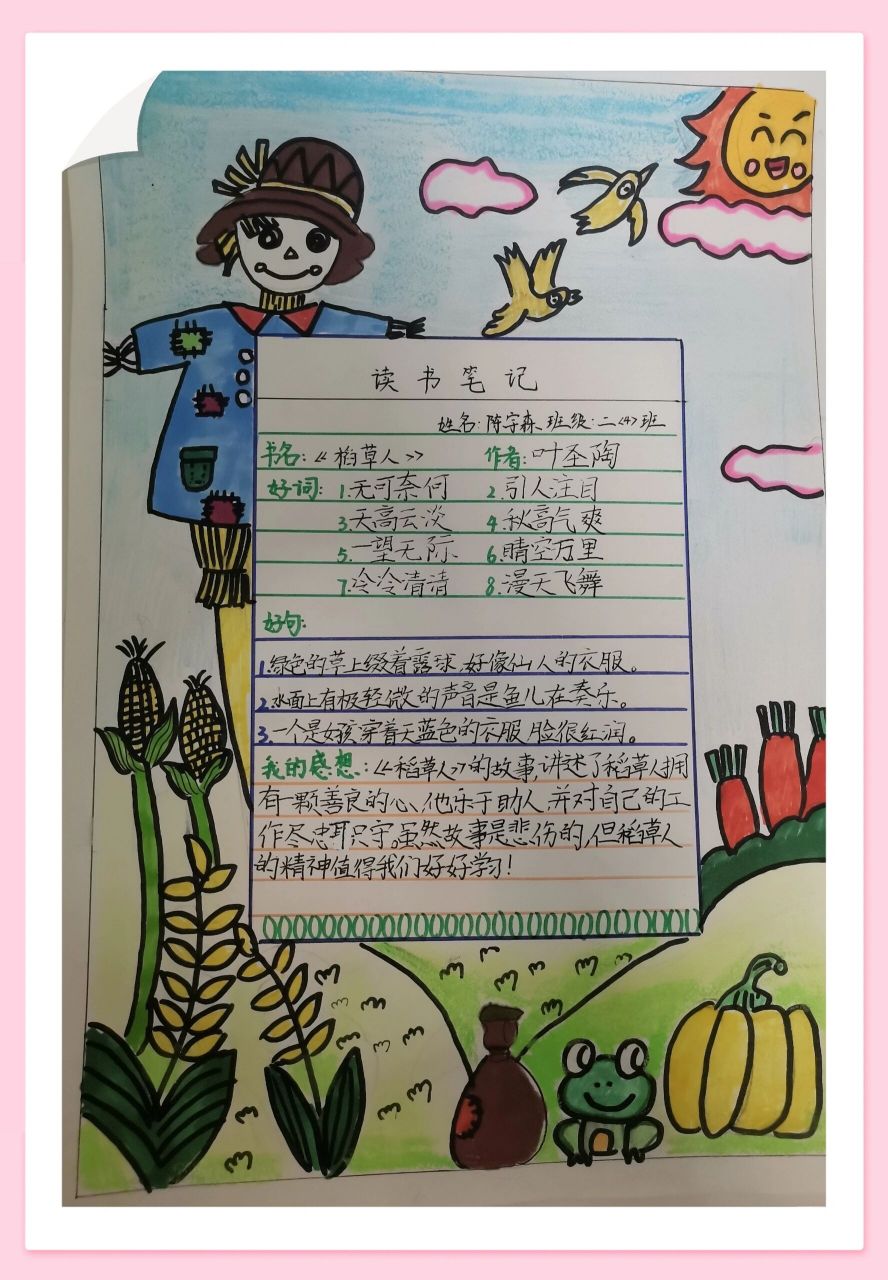 读书笔记
姓名:陈宇森 班级:二<4>班
书名:《稻草人》 作者:叶圣陶
好词: 1.无可奈何 2.引人注目
3.天高云淡 4.秋高气爽
5.一望无际 6.晴空万里
7.冷冷清清 8.漫天飞舞
好句:
1.绿色的草上缀着露球,好像仙人的衣服。
2.水面上有极轻微的声音是鱼儿在奏乐。
3.一个是女孩穿着天蓝色的衣服,脸很红润。
我的感想:《稻草人》的故事,讲述了稻草人拥
有一颗善良的心、他乐于助人,并对自己的工
作尽忠职守。虽然故事是悲伤的,但稻草人
的精神值得我们好好学习!